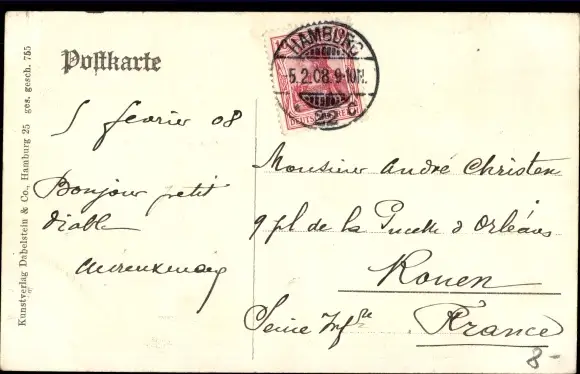 Postkarte
HAMBURG
5.2.08.9-10N.
22 C
5 février 08
Bonjour petit
diable
Monsieur André Christen
9 pl de la Pucelle d'Orléans
Rouen
Seine Infre France
8-
Kunstverlag Dabelstein & Co., Hamburg 25 ges. gesch. 755